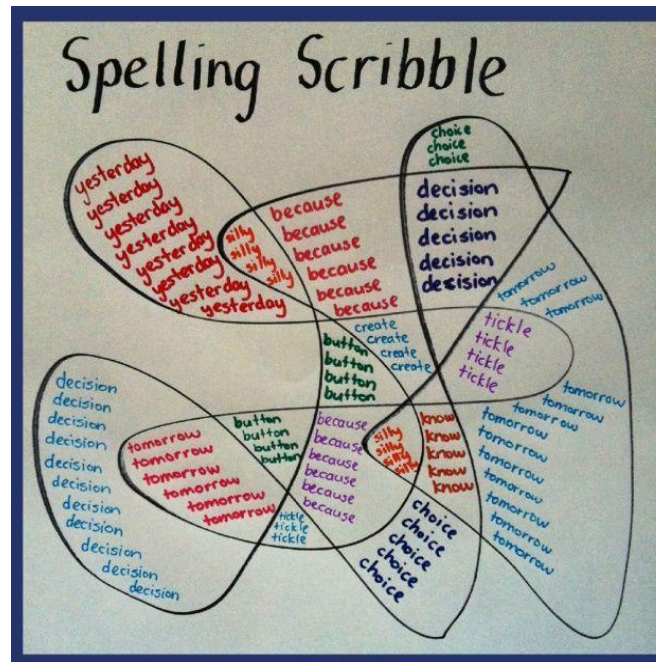 Spelling Scribble
choice
choice
choice
yesterday
yesterday
yesterday
yesterday
yesterday
yesterday
yesterday
yesterday
silly
silly
silly
silly
because
because
because
because
because
because
decision
decision
decision
decision
decision
tomorrow
tomorrow
tomorrow
create
create
create
create
button
button
button
button
tickle
tickle
tickle
tickle
decision
decision
decision
decision
decision
decision
decision
decision
decision
decision
decision
tomorrow
tomorrow
tomorrow
tomorrow
tomorrow
button
button
button
button
because
because
because
because
because
because
silly
silly
silly
silly
know
know
know
know
know
tomorrow
tomorrow
tomorrow
tomorrow
tomorrow
tomorrow
tomorrow
tomorrow
tomorrow
tomorrow
tomorrow
tickle
tickle
tickle
choice
choice
choice
choice
choice